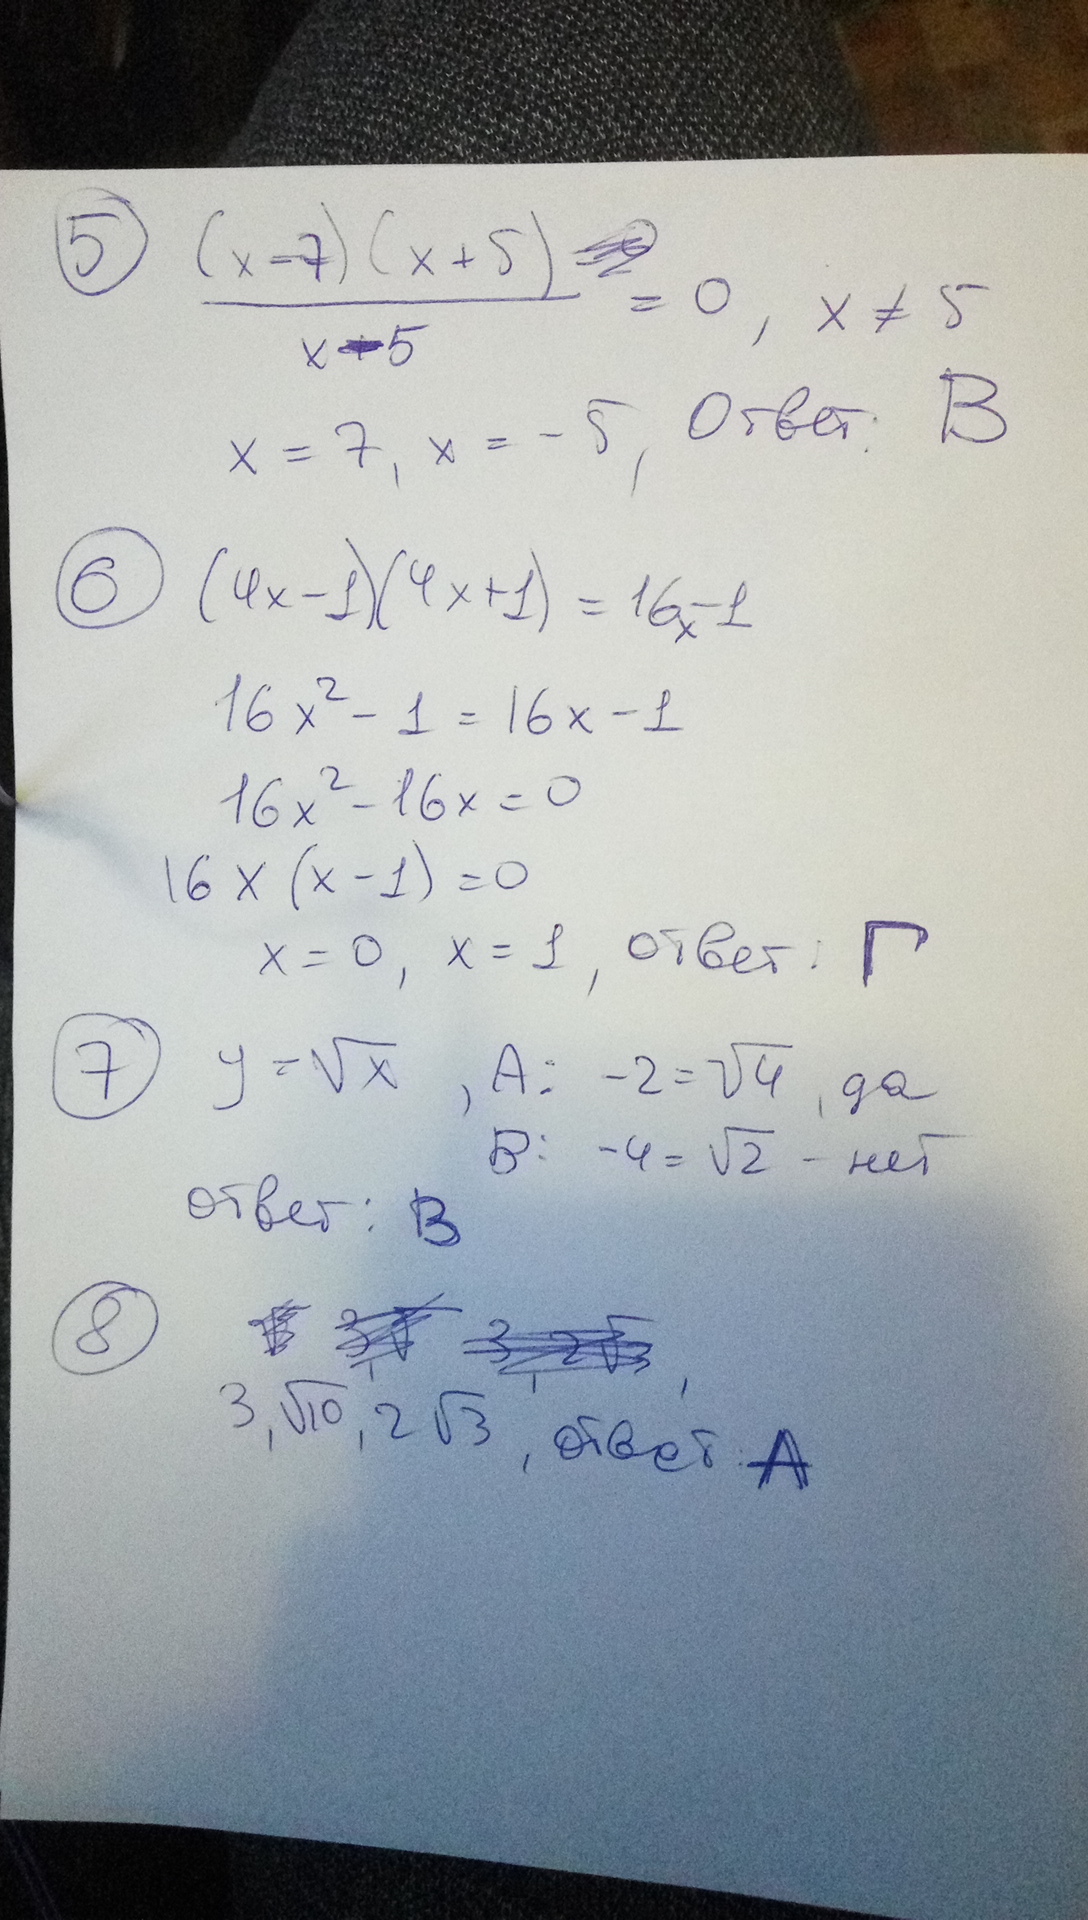 5 (x-7)(x+5)
= 0, x ≠ 5
x-5
x = 7, x = -5, Ответ: В
6 (4x-1)(4x+1) = 16x-1
16x² - 1 = 16x - 1
16x² - 16x = 0
16x (x-1) = 0
x = 0, x = 1, ответ: Г
7 y = √x, А: -2 = √4, да
В: -4 = √2 - нет
ответ: В
8
3, √10, 2√3, ответ: А